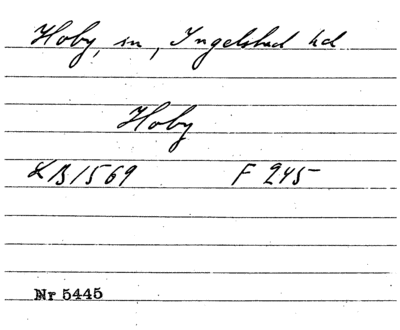 Hoby, sn, Ingelstad hd
Hoby
KB 1569 F 245
Nr 5445